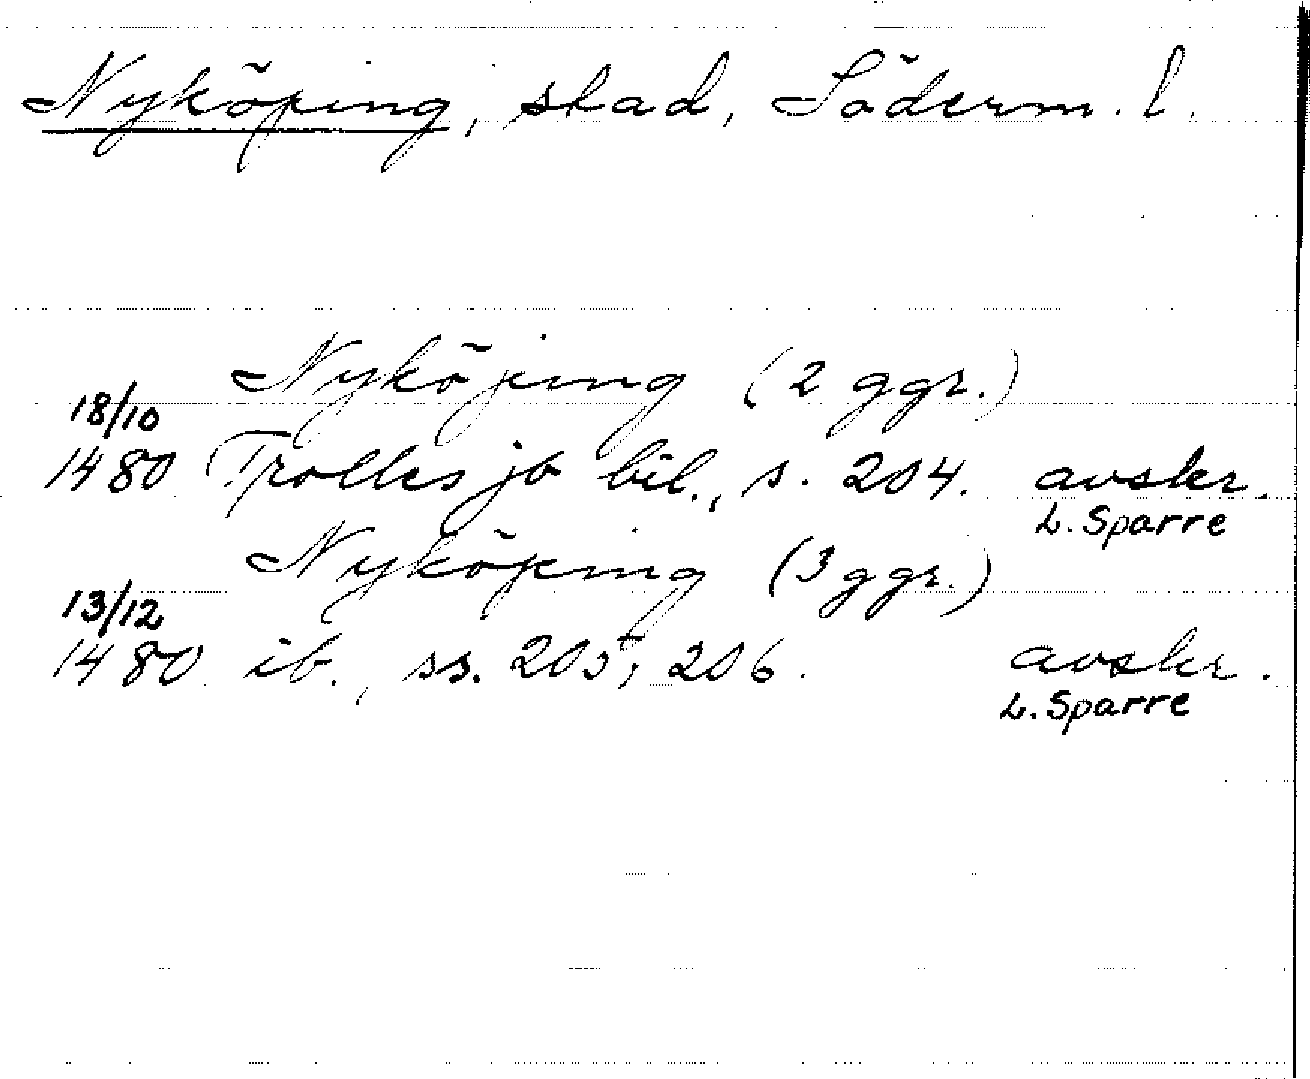 Nyköping, stad, Söderm. l.
Nyköping (2 ggr.)
18/10
1480 Trolles jb bil., s. 204. avskr.
L. Sparre
Nyköping (3 ggr.)
13/12
1480 ib., ss. 205, 206. avskr.
L. Sparre